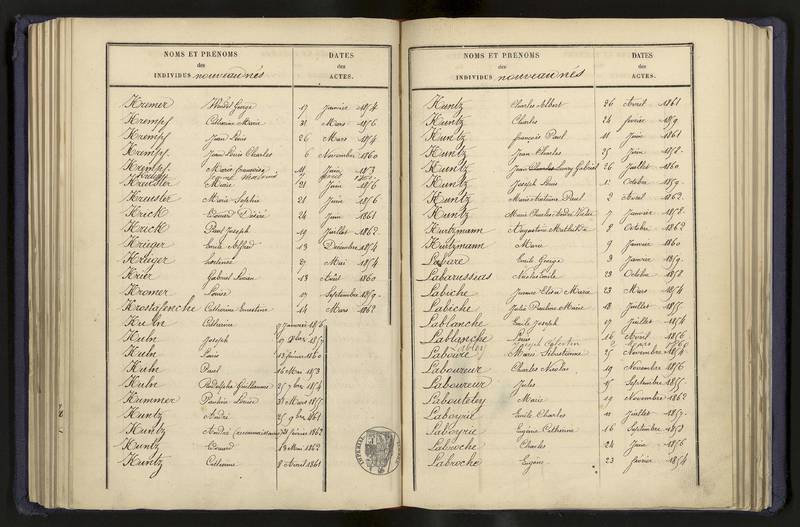 NOMS ET PRÉNOMS
des
INDIVIDUS nouveau nés
DATES
des
ACTES.
Kremer George 17 janvier 1854
Krempf Catherine Marie 31 Mars 1856
Krempf Jean Louis 26 Mars 1854
Krempf Jean Louis Charles 6 Novembre 1860
Krempf Marie françoise 11 Juin 1853
Kreusler Marie 21 Juin 1856
Kreusler Marie Sophie 21 Juin 1856
Krick Edouard Désiré 24 Juin 1861
Krick Paul Joseph 19 Juillet 1862
Kriéger Emile Alfred 13 Décembre 1854
Kriéger hortense 27 Mai 1854
Krier Gabriel 13 Août 1860
Kromer Louise 17 Septembre 1859
Catherine Ernestine 14 Mars 1862
Kuhn Catherine 9 Janvier 1856
Kuhn Joseph 9 Xbre 1857
Kuhn Louis 13 février 1860
Kuhn Paul 16 Mai 1853
Kuhn Rodolphe Guillaume 25 7bre 1854
Kummer Pauline Louise 31 Mars 1857
Kuntz André 25 9bre 1861
Kuntz André (reconnaissance) février 1862
Kuntz Edouard 13 Mai 1862
Kuntz Catherine 8 Avril 1861
NOMS ET PRÉNOMS
des
INDIVIDUS nouveau nés
DATES
des
ACTES.
Kuntz Charles Albert 26 Avril 1861
Kuntz Charles 24 février 1859
Kuntz françois Paul 11 Juin 1861
Kuntz Jean Charles 25 Juin 1858
Kuntz Jean Charles Gabriel 26 Juillet 1860
Kuntz Joseph Louis 1er Octobre 1859
Kuntz Marie Antoine Paul 2 Avril 1862
Kuntz Marie Charles 7 Janvier 1858
Kurtzmann Augustine Mathilde 8 Octobre 1862
Kurtzmann Marie 9 Janvier 1860
Emile George 3 Janvier 1859
Labarussias Nicolas Emile 23 Octobre 1858
Labiche Jeanne Elisa Marie 23 Mars 1854
Labiche Julie Pauline Marie 18 Juillet 1857
Lablanche Emile Joseph 17 Juillet 1854
Lablanche Louis 16 Avril 1856
Labley Joseph Celestin
Laboure Marie Sébastienne 25 Novembre 1854
Laboureur Charles Nicolas 19 Novembre 1856
Laboureur Jules 15 Septembre 1855
Marie 19 Novembre 1862
Laboyrie Emile Charles 11 Juillet 1857
Laboyrie Eugénie Catherine 16 Septembre 1853
Labroche Charles 24 Juin 1856
Labroche Eugène 23 février 1854